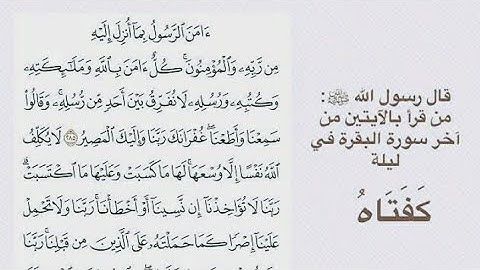 ءَامَنَ ٱلرَّسُولُ بِمَآ أُنزِلَ إِلَيْهِ
مِن رَّبِّهِۦ وَٱلْمُؤْمِنُونَ ۚ كُلٌّ ءَامَنَ بِٱللَّهِ وَمَلَٰٓئِكَتِهِۦ
وَكُتُبِهِۦ وَرُسُلِهِۦ لَا نُفَرِّقُ بَيْنَ أَحَدٍ مِّن رُّسُلِهِۦ ۚ وَقَالُوا۟
سَمِعْنَا وَأَطَعْنَا ۖ غُفْرَانَكَ رَبَّنَا وَإِلَيْكَ ٱلْمَصِيرُ ٢٨٥ لَا يُكَلِّفُ
ٱللَّهُ نَفْسًا إِلَّا وُسْعَهَا ۚ لَهَا مَا كَسَبَتْ وَعَلَيْهَا مَا ٱكْتَسَبَتْ ۗ
رَبَّنَا لَا تُؤَاخِذْنَآ إِن نَّسِينَآ أَوْ أَخْطَأْنَا ۚ رَبَّنَا وَلَا تَحْمِلْ
عَلَيْنَآ إِصْرًا كَمَا حَمَلْتَهُۥ عَلَى ٱلَّذِينَ مِن قَبْلِنَا ۚ رَبَّنَا
قال رسول الله ﷺ :
من قرأ بالآيتين من
آخر سورة البقرة في
ليلة
كَفَتَاهُ